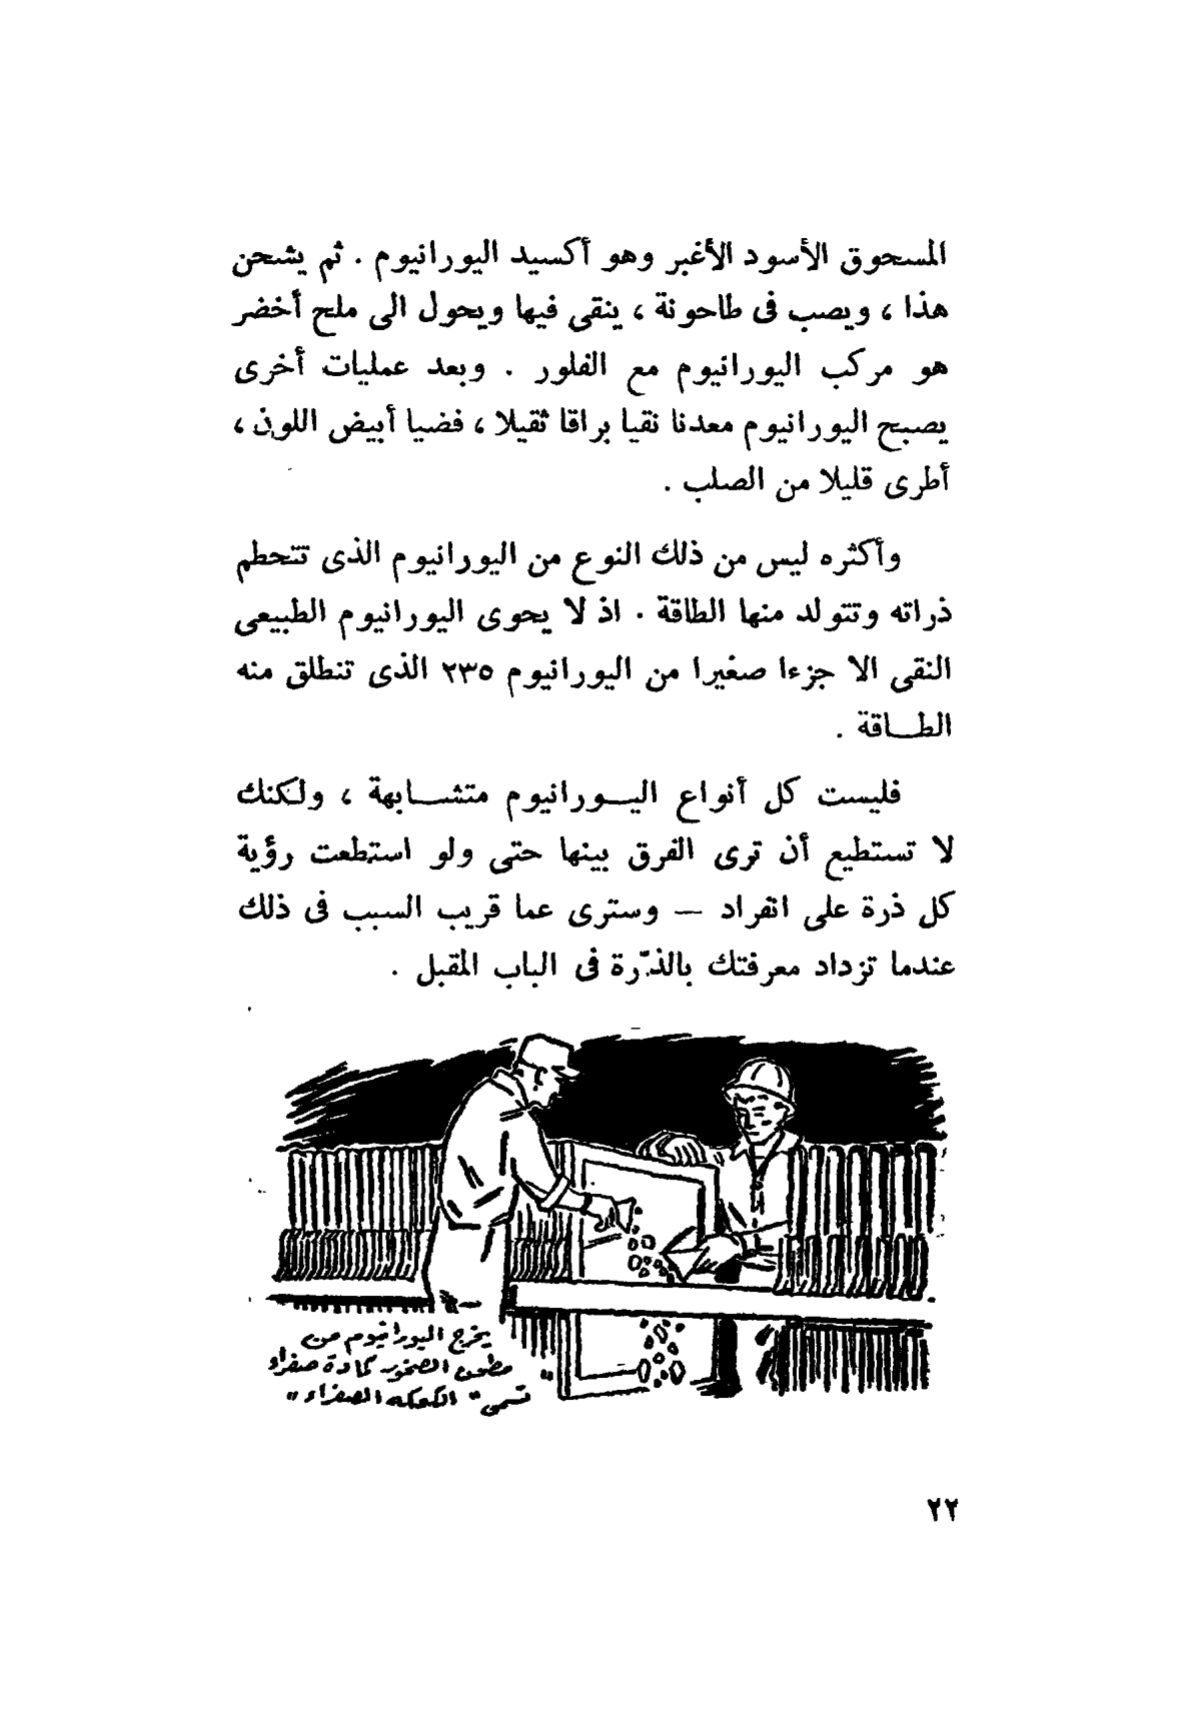 المسحوق الأسود الأغبر وهو أكسيد اليورانيوم . ثم يشحن
هذا ، ويصب فى طاحونة ، ينقى فيها ويحول الى ملح أخضر
هو مركب اليورانيوم مع الفلور . وبعد عمليات أخرى
يصبح اليورانيوم معدنا نقيا براقا ثقيلا ، فضيا أبيض اللون ،
أطرى قليلا من الصلب .
وأكثره ليس من ذلك النوع من اليورانيوم الذى تتحطم
ذراته وتتولد منها الطاقة . اذ لا يحوى اليورانيوم الطبيعى
النقى الا جزءا صغيرا من اليورانيوم ٢٣٥ الذى تنطلق منه
الطـــاقة .
فليست كل أنواع اليـــورانيوم متشـــابهة ، ولكنك
لا تستطيع أن ترى الفرق بينها حتى ولو استطعت رؤية
كل ذرة على انفراد — وسترى عما قريب السبب فى ذلك
عندما تزداد معرفتك بالذرّة فى الباب المقبل .
يخرج اليورانيوم من
مطحن الصخور كمادة صفراء
تسمى " الكعكه الصفراء "
٢٢